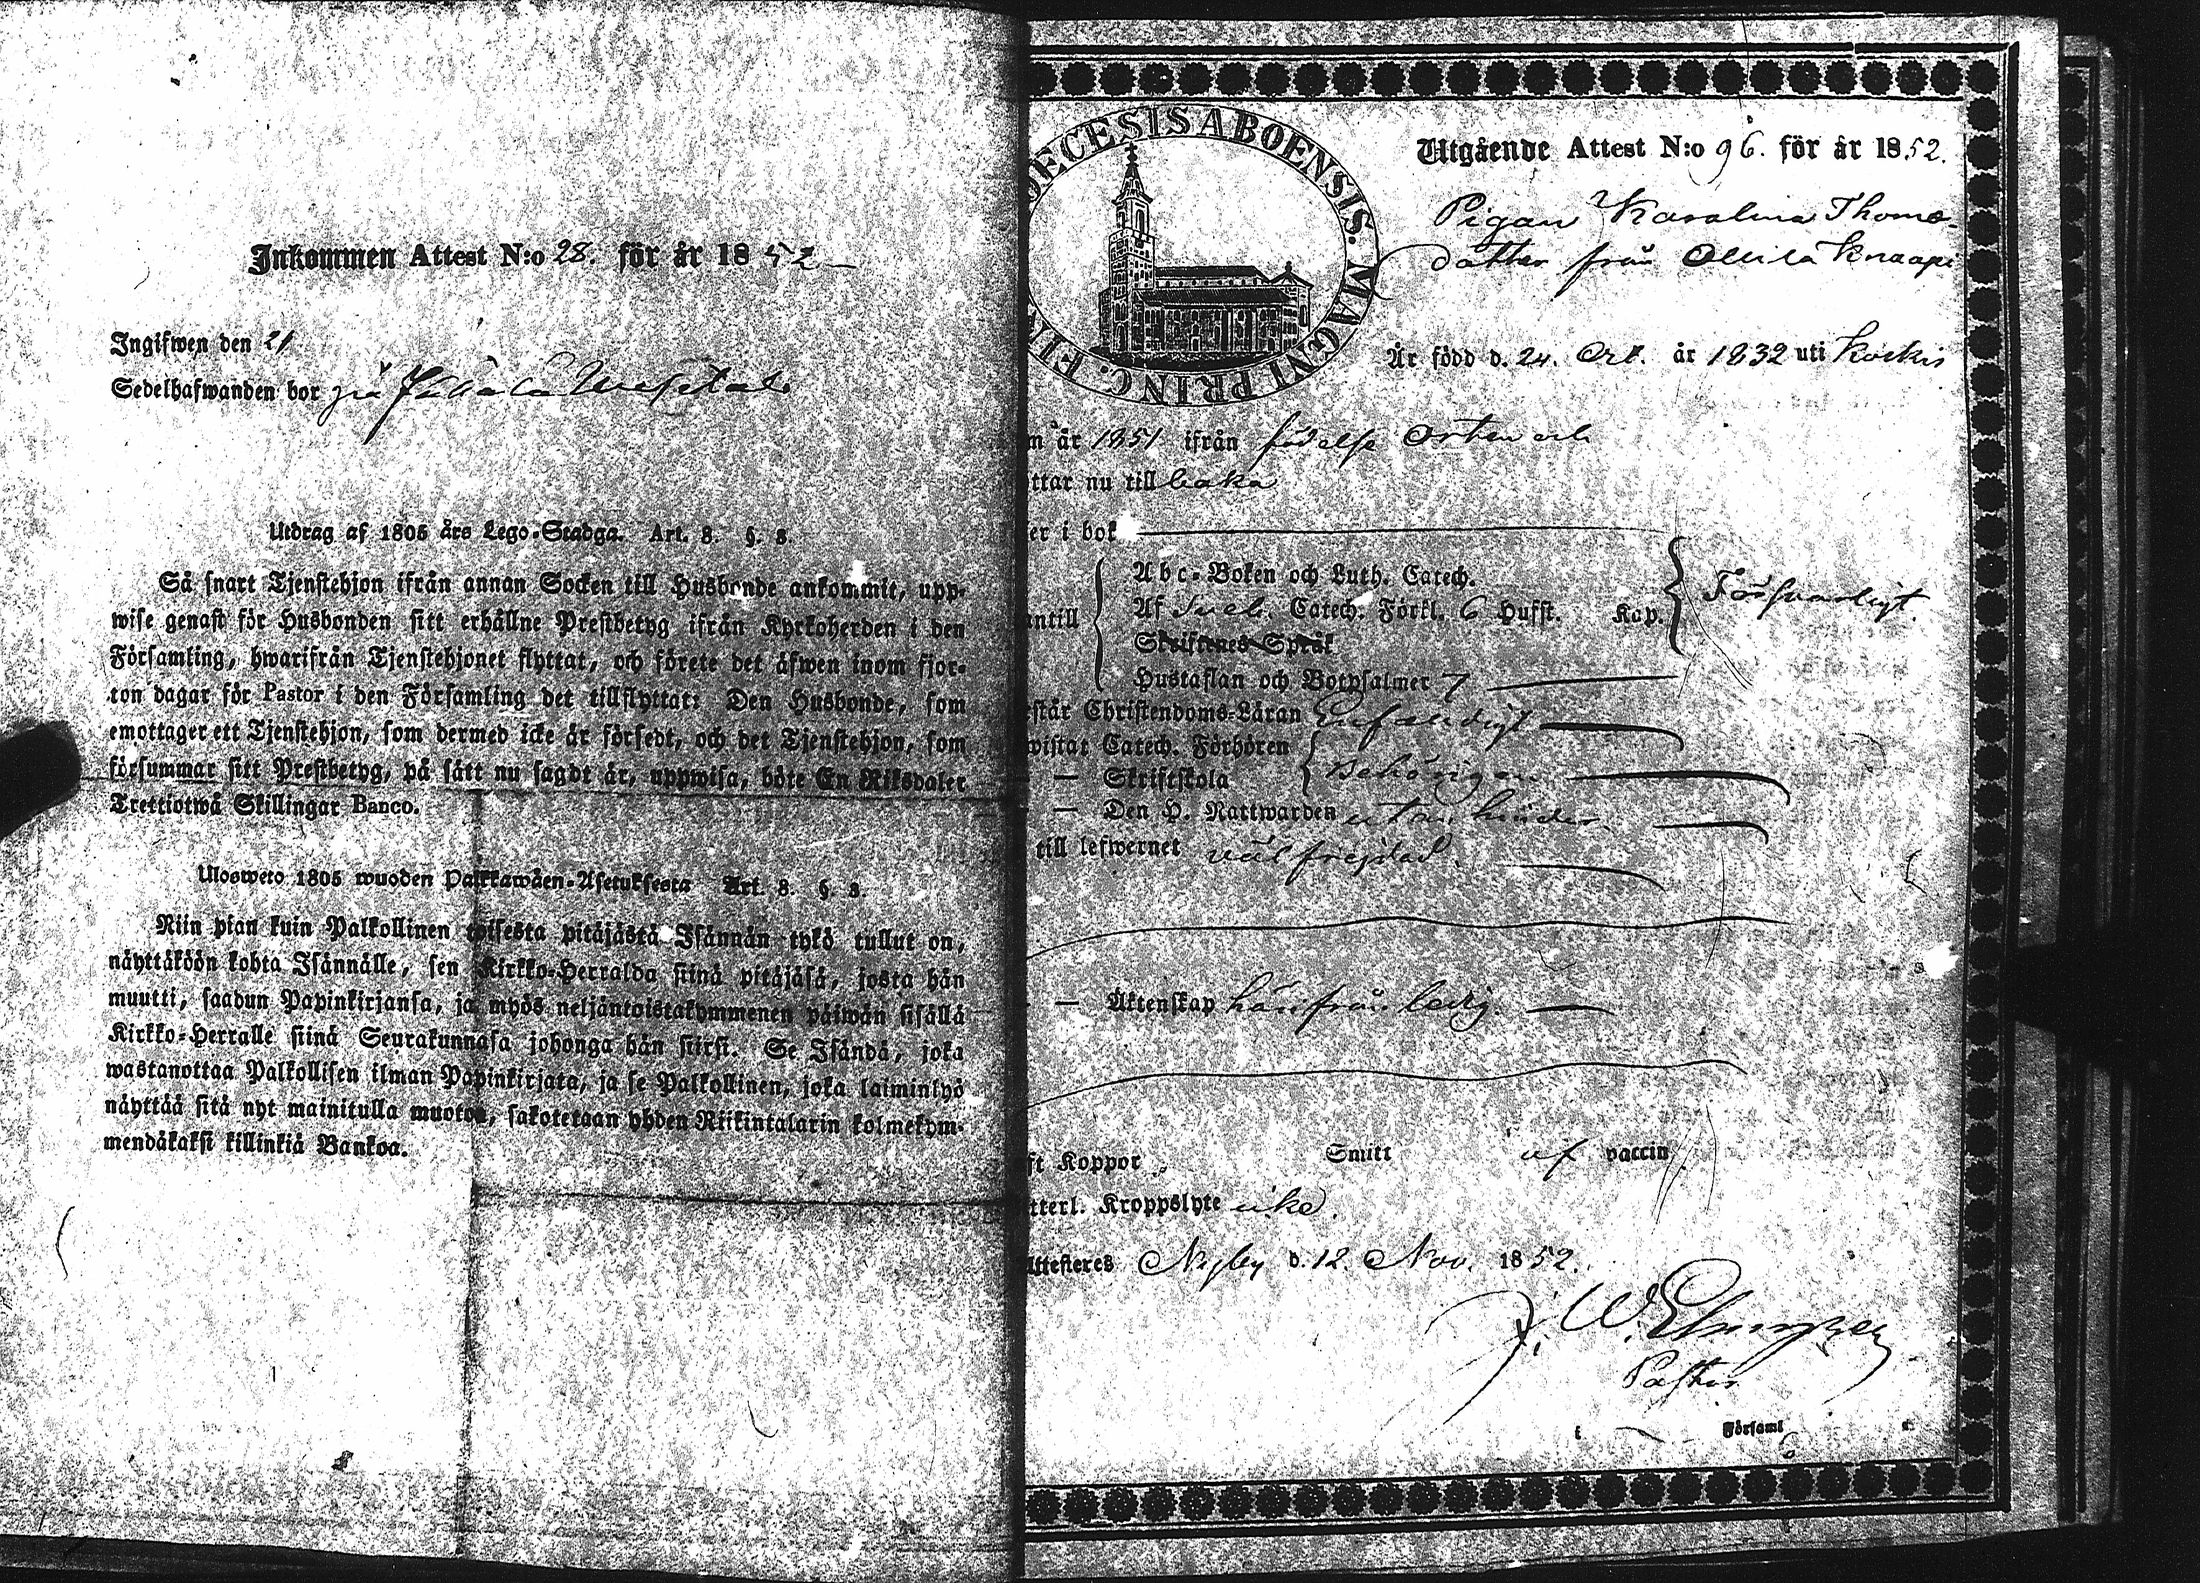 Inkommen Attest N:o 28. för år 1852
Ingifwen den 21
Sedelhafwanden bor på
Utdrag af 1805 års Lego-Stadga. Art. 8. §. 3.
Så snart Tjenstehjon ifrån annan Socken till Husbonde ankommit, upp-
wise genast för Husbonden sitt erhållne Prestbetyg ifrån Kyrkoherden i den
Församling, hwarifrån Tjenstehjonet flyttat, och förete det äfwen inom fjor-
ton dagar för Pastor i den Församling det tillflyttat: Den Husbonde, som
emottager ett Tjenstehjon, som dermed icke är försedt, och det Tjenstehjon, som
försummar sitt Prestbetyg, på sätt nu sagdt är, uppwisa, böte En Riksdaler
Trettiotwå Skillingar Banco.
Ulosweto 1805 wuoden Palkkawäen-Asetuksesta Art. 8. §. 3.
Niin pian kuin Palkollinen toisesta pitäjästä Isännän tykö tullut on,
näyttäköön kohta Isännälle, sen Kirkko-Herralda siinä pitäjäsä, josta hän
muutti, saadun Papinkirjansa, ja myös neljäntoistakymmenen päiwän sisällä
Kirkko-Herralle siinä Seurakunnasa johonga hän siirsi. Se Isändä, joka
wastanottaa Palkollisen ilman Papinkirjata, ja se Palkollinen, joka laiminlyö
näyttää sitä nyt mainitulla muotoa, sakotetaan yhden Riikintalarin kolmekym-
mendäkaksi killinkiä Bankoa.
DECESIS ABOENSIS. MAGNI PRINC. FI
Utgående Attest N:o 96. för år 1852.
Pigan Karolina Thomæ-
dotter från Ollila Knaapi
Är född d. 24. Oct. år 1832 uti Koskis
n år 1851 ifrån födelse Orten och
ttar nu tillbaka
er i bok
Abc-Boken och Luth. Catech.
antill Af Sveb. Catech. Förkl. 6 Hufst. Kap. Försvarligt.
Skriftenes Språk
Hustaflan och Botpsalmer 7
står Christendoms-Läran Enfaldigt
wistat Catech. Förhören
— Skriftskola Behörigen
— Den H. Nattwarden utan hinder.
till lefwernet väl frejdad.
— Äktenskap härifrån ledig.
ft Koppor Smitt af vaccin
tterl. Kroppslyte icke.
Attesteres Nygby d. 12. Nov. 1852.
Pastor
i Församl